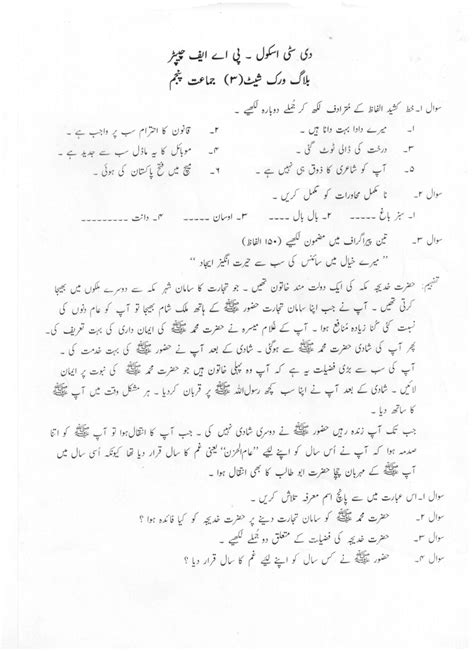 دی سٹی اسکول ۔ پی اے ایف چیپٹر
بلاگ ورک شیٹ (۳) جماعت پنجم
سوال ۱۔ خط کشید الفاظ کے مترادف لکھ کر جُملے دوبارہ لکھیے ۔
۱۔ میرے دادا بہت دانا ہیں ۔ ۲۔ قانون کا احترام سب پر واجب ہے ۔
۳۔ درخت کی ڈالی ٹوٹ گئی ۔ ۴۔ موبائل کا یہ ماڈل سب سے جدید ہے ۔
۵۔ آپ کو شاعری کا ذوق ہی نہیں ہے ۔ ۶۔ میچ میں فتح پاکستان کی ہوئی ۔
سوال ۲۔ نا مکمل محاورات کو مکمل کریں ۔
۱۔ سبز باغ ۔۔۔۔۔ ۲۔ بال بال ۔۔۔۔ ۳۔ اوسان ۔۔۔۔۔۔ ۴۔ دانت ۔۔۔۔۔۔۔۔۔
سوال ۳۔ تین پیراگراف میں مضمون لکھیے (۱۵۰ الفاظ)
" میرے خیال میں سائنس کی سب سے حیرت انگیز ایجاد "
تفہیم: حضرت خدیجہ مکہ کی ایک دولت مند خاتون تھیں ۔ جو تجارت کا سامان شہر مکہ سے دوسرے ملکوں میں بھیجا
کرتی تھیں ۔ آپ نے جب اپنا سامان تجارت حضور ﷺ کے ہاتھ ملک شام بھیجا تو آپ کو عام دنوں کی
نسبت کئی گنا زیادہ مُنافع ہوا ۔ آپ کے غلام میسرہ نے حضرت محمد ﷺ کی ایمان داری کی بہت تعریف کی۔
آپ کی شادی حضرت محمد ﷺ سے ہوگئی ۔ شادی کے بعد آپ نے حضور ﷺ کی بہت خدمت کی ۔
آپ کی سب سے بڑی فضلیات یہ ہے کہ آپ وہ پہلی خاتون ہیں جو حضرت محمد ﷺ کی نبوت پر ایمان
لائیں ۔ شادی کے بعد آپ نے اپنا سب کچھ رسول اللہ ﷺ پر قربان کردیا ۔ ہر مشکل وقت میں آپ ﷺ
کا ساتھ دیا ۔
جب تک آپ زندہ رہیں حضور ﷺ نے دوسری شادی نہیں کی ۔ جب آپ کا انتقال ہوا تو آپ ﷺ کو اتنا
صدمہ ہوا کہ آپ نے اُس سال کو اپنے لیئے "عام الحزن" یعنی غم کا سال قرار دیا تھا کیونکہ اُسی سال میں
آپ ﷺ کے مہربان چچا حضرت ابو طالب کا بھی انتقال ہوا ۔
سوال ۱۔ اس عبارت میں سے پانچ اسم معرفہ تلاش کریں ۔
سوال ۲۔ حضرت محمد ﷺ کو سامان تجارت دینے پر حضرت خدیجہ کو کیا فائدہ ہوا ؟
سوال ۳۔ حضرت خدیجہ کی فضلیات کے متعلق دو جُملے لکھیے ۔
سوال ۴۔ حضور ﷺ نے کس سال کو اپنے لئیے غم کا سال قرار دیا ؟